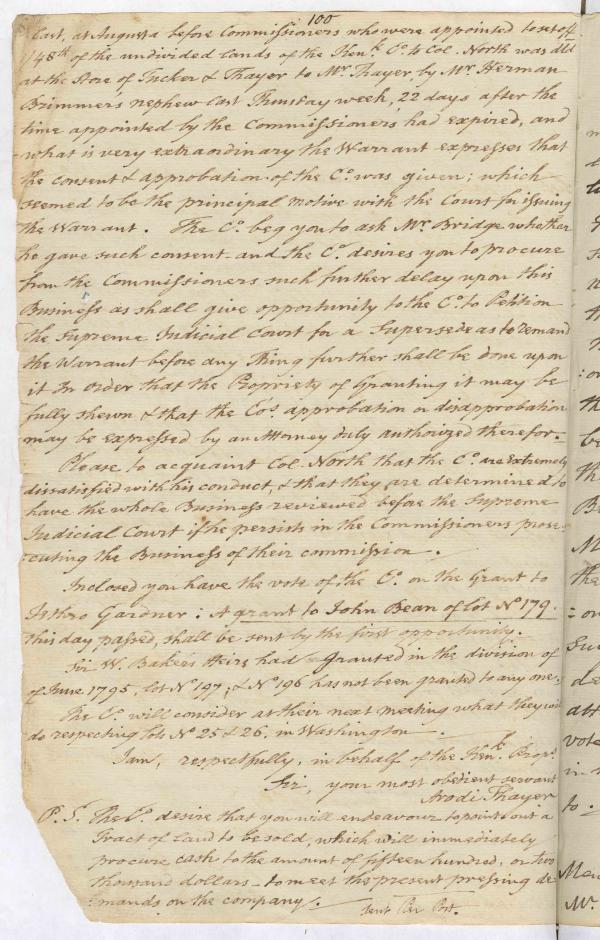 100
last, at Augusta before Commissioners who were appointed to set off
1/48th of the undivided lands of the Kenk. Co. to Col. North was dld
at the Store of Tucker & Thayer to Mr. Thayer, by Mr. Herman
Brimmer's nephew last Thursday week, 22 days after the
time appointed by the Commissioners had expired, and
what is very extraordinary the Warrant expresses that
the consent & approbation of the Co. was given; which
seemed to be the principal motive with the Court for issuing
the Warrant. The Co. beg you to ask Mr. Bridge whether
he gave such consent and the Co. desires you to procure
from the Commissioners such further delay upon this
Business as shall give opportunity to the Co. to Petition
the Supreme Judicial Court for a Supersedeas to remand
the Warrant before any Thing further shall be done upon
it In order that the Propriety of Granting it may be
fully shewn & that the Co's. approbation or disapprobation
may be expressed by an Attorney duly authorized therefor.
Please to acquaint Col. North that the Co. are extremely
dissatisfied with his conduct, & that they are determined to
have the whole Business reviewed before the Supreme
Judicial Court if he persists in the Commissioners prose-
cuting the Business of their commission.
Inclosed you have the vote of the Co. on the Grant to
Jethro Gardner: A grant to John Bean of Lot No. 179.
this day passed, shall be sent by the first opportunity.
Sir W. Baker's Heirs had Granted in the division of
of June 1795, lot No. 197, & No. 196 has not been granted to any one.
The Co. will consider at their next meeting what they will
do respecting lots No. 25 & 26, in Washington
I am, respectfully, in behalf of the Kenk. Props.
Sir, your most obedient servant
Arodi Thayer
P.S. The Co. desire that you will endeavour to point out a
Tract of land to be sold, which will immediately
procure cash to the amount of fifteen hundred, or two
thousand dollars to meet the present pressing de-
mands on the company.
Sent Per Post.